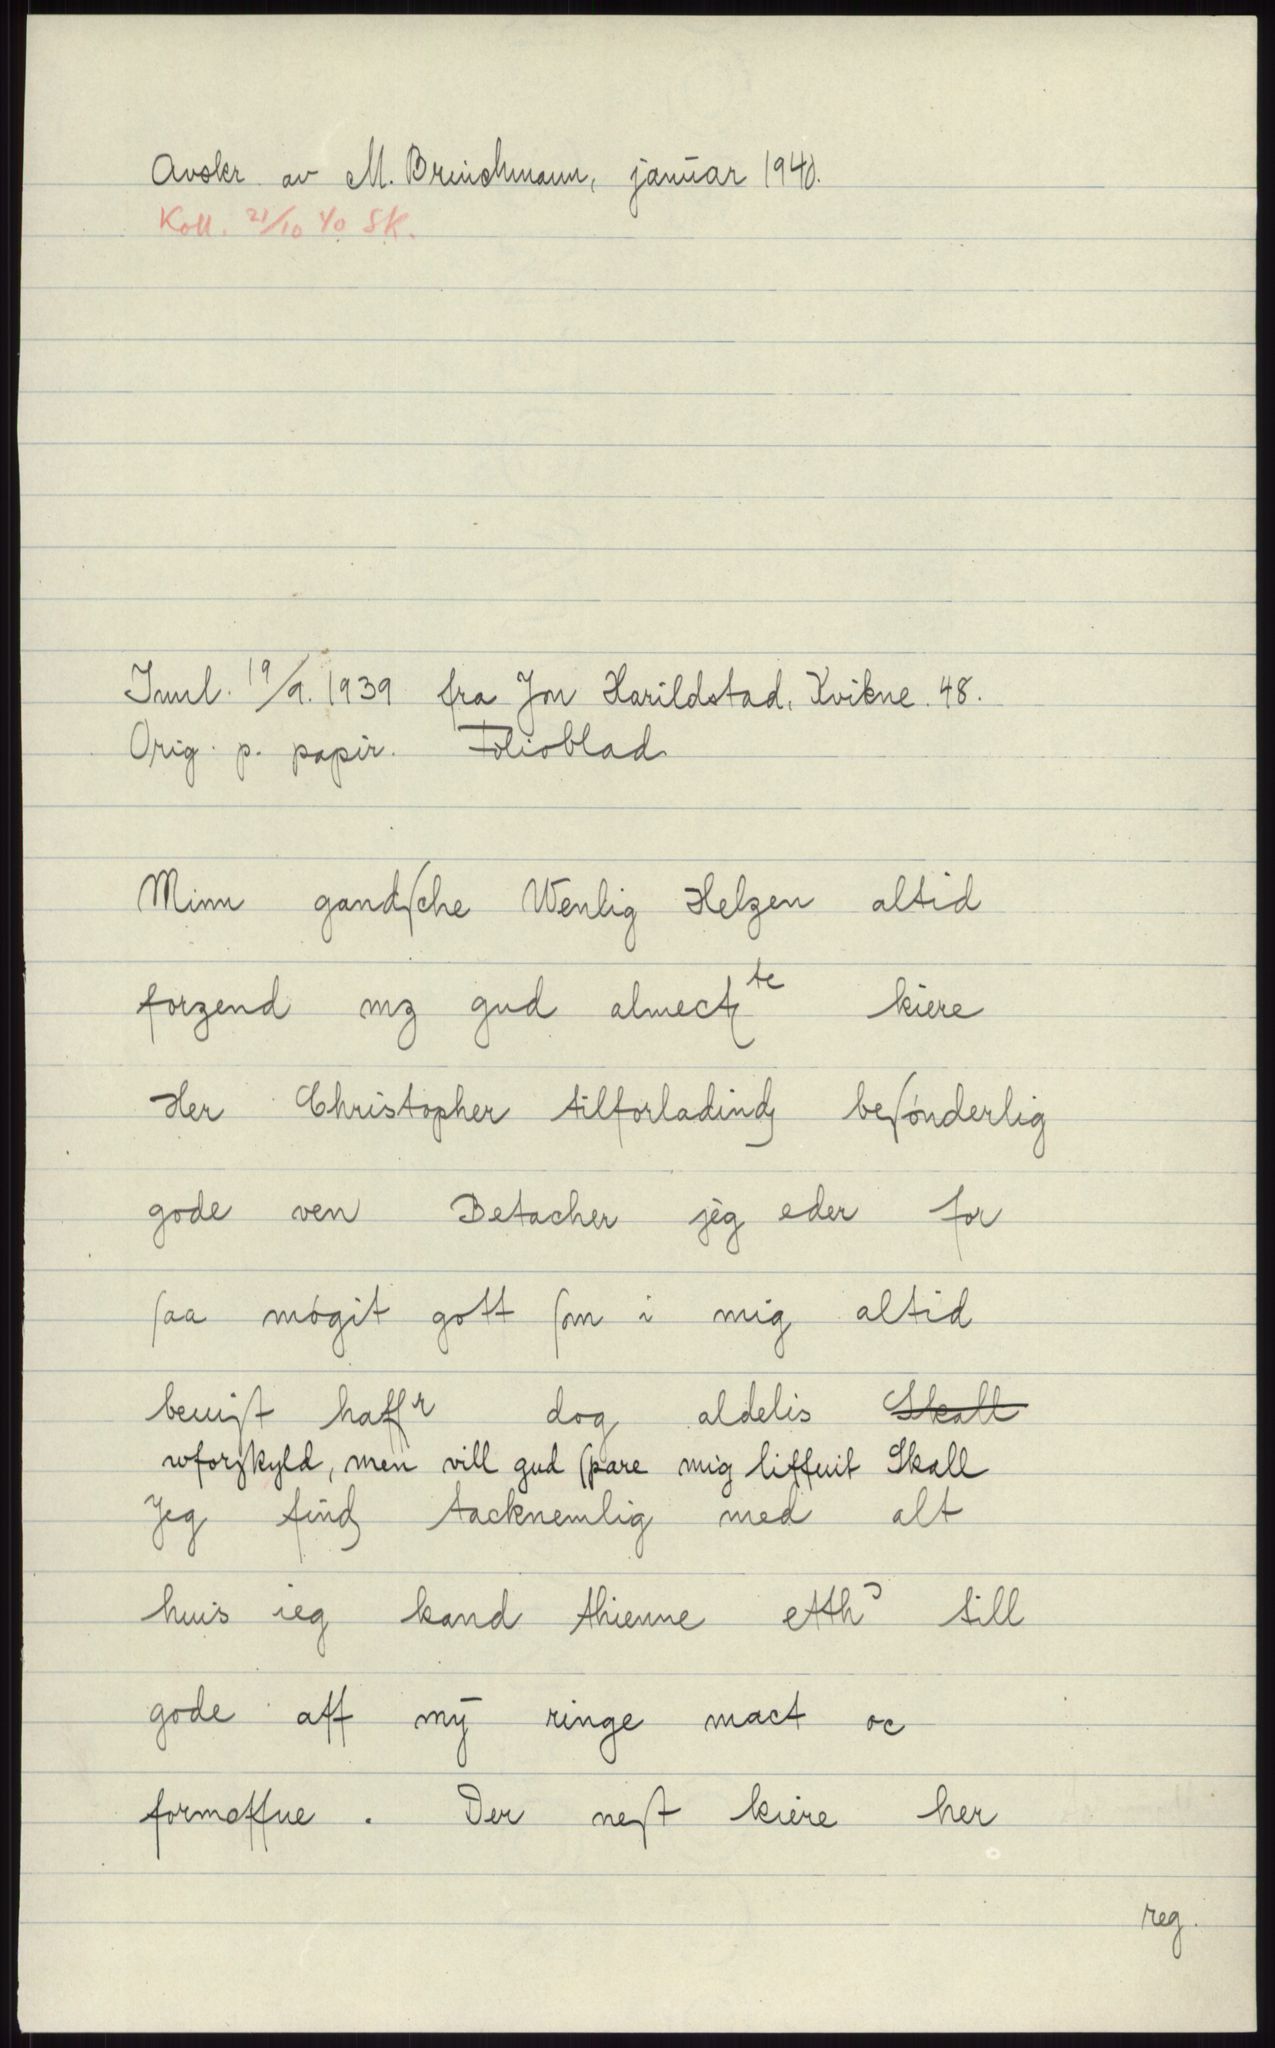 Avskr. av M. Brinchmann, januar 1940.
Koll. 21/10 40 SK.
Innl. 19/9. 1939 fra Jon Harildstad, Kvikne. 48.
Orig. p. papir. Folioblad
Minn gandſche Wenlig Helzen altid
forzend mz gud almectte kiere
Her Christopher tilforladindz beſónderlig
gode ven Betacher jeg eder for
ſaa mógit gott ſom i mig altid
beuiſt haffr dog aldelis Skall
wforſkyld, men vill gud ſpare mig liffuit Skall
Jeg findz tacknemlig med alt
huis ieg kand thienne etth till
gode aff mȳ ringe mact oc
formeffue. Der neſt kiere her
reg.